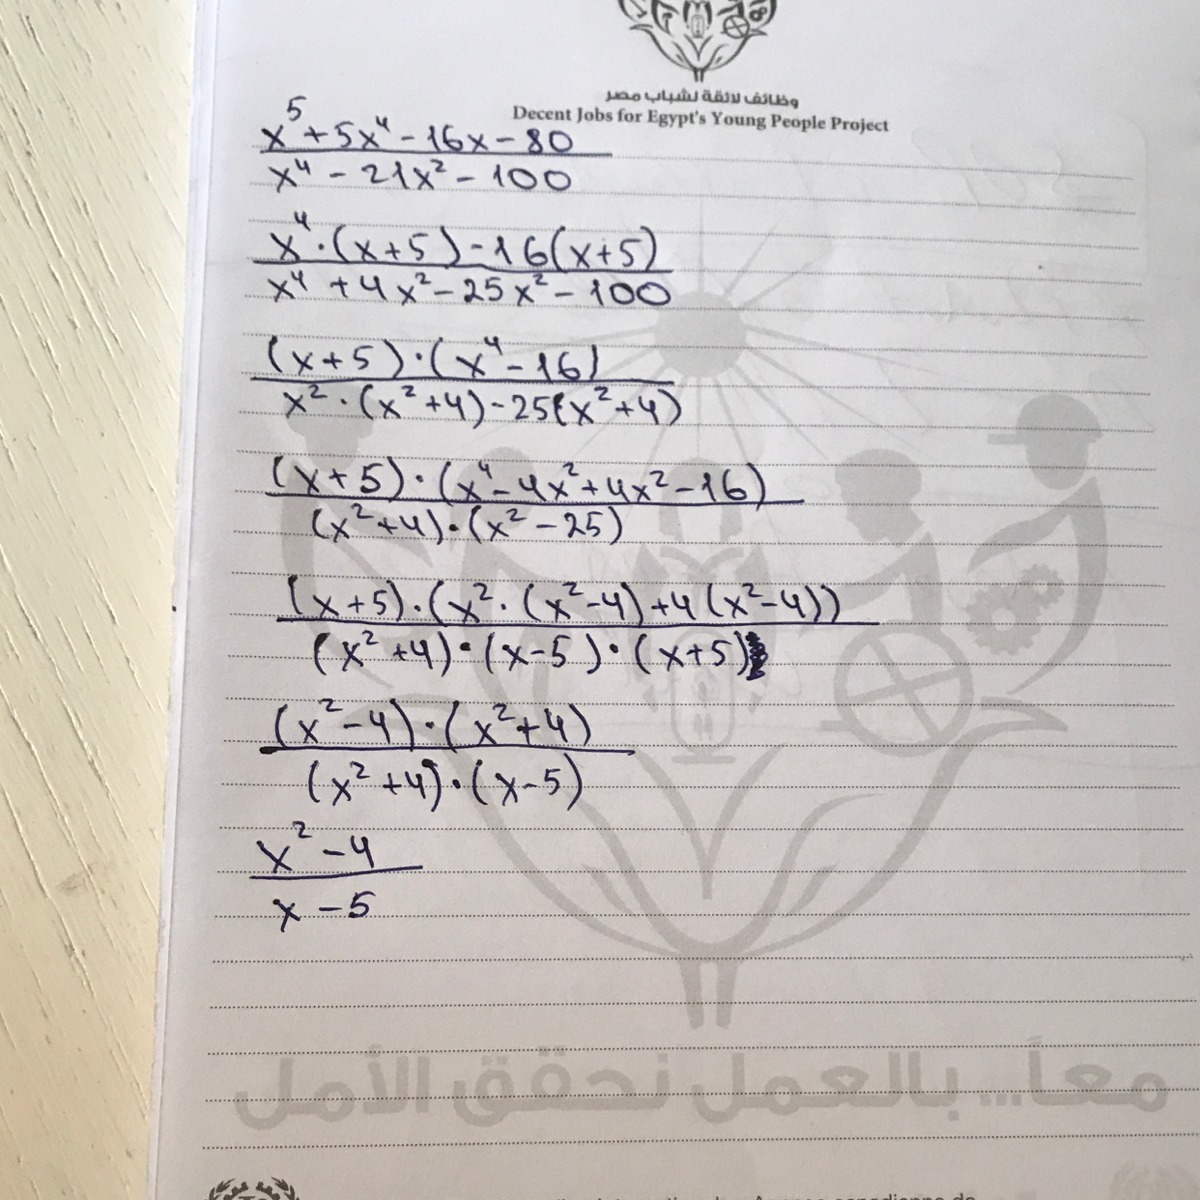 وظائف لائقة لشباب مصر
Decent Jobs for Egypt's Young People Project
x⁵+5x⁴-16x-80
x⁴-21x²-100
x⁴·(x+5)-16(x+5)
x⁴+4x²-25x²-100
(x+5)·(x⁴-16)
x²·(x²+4)-25(x²+4)
(x+5)·(x⁴-4x²+4x²-16)
(x²+4)·(x²-25)
(x+5)·(x²·(x²-4)+4(x²-4))
(x²+4)·(x-5)·(x+5)
(x²-4)·(x²+4)
(x²+4)·(x-5)
x²-4
x-5
معاً... بالعمل نحقق الأمل